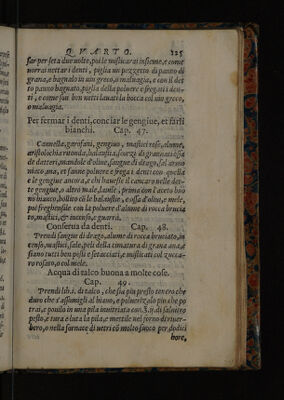 QVARTO. 125
far per se ta due uolte, poi le misticarai insieme, e come
uorrai nettar i denti, piglia un pezzetto di panno di
grana, e bagnalo in un greco, o maluagia, e con il det
to panno bagnato, piglia della poluere e fregati i den-
ti, e come sian ben netti lauati la bocca col uin greco,
o maluagia.
Per fermar i denti, conciar le gengiue, et farli
bianchi. Cap. 47.
Cannella, garofani, gengiouo, mastici rose, alume,
aristolochia rotonda, balaustia, scorze di granati ossa
de datteri, mandole d'oliue, sangue di drago, sal armo
niaco, ana, et fanne poluere e frega i denti con quella
e le gengiue ancora, e chi hauesse il cancaro nelle det-
te gengiue, o altro male, lauisi, prima con l'aceto, o ui
no bianco, bollito cō le balaustie, e ossa d'oliue, e mele,
poi freghensile con la poluere d'alume di rocca brucia
to, mastici, & incenso, e guarrà.
Conserua da denti. Cap. 48.
Prendi sangue di drago, alume di rocca bruciato, in
censo, mastici, sale, peli della cimatura di grana ana, e
siano tutti ben pisti e setacciati, e misticati col zucca-
ro rosato, o col mele.
Acqua di talco buona a molte cose.
Cap. 49.
Prendi lib. i. di talco, che sia piu presto tenero che
duro che s'assomigli al biano, e poluerizalo piu che po
trai, e ponilo in una pila inuitriata con ʒ. ij. di salnitro
pesto, e tura e luta la pila, e mettile nel forno di riuer-
bero, o nella fornace di uetri cō molto fuoco per dodici
hore,